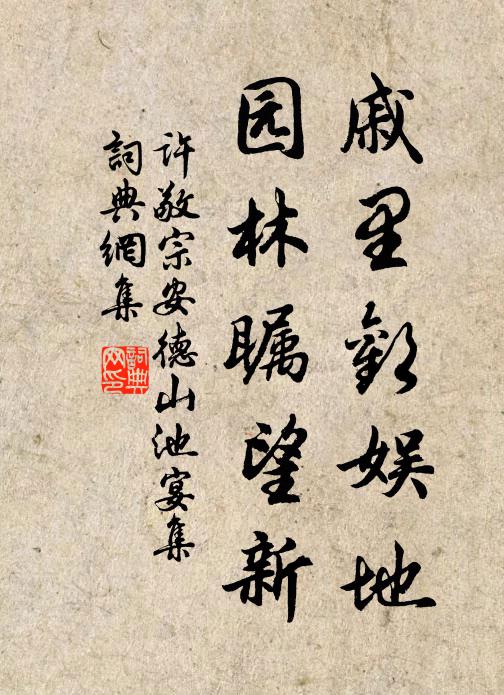 戚里歡娱地
园林瞩望新
许敬宗安德山池宴集
詞典網集
詞典
网印